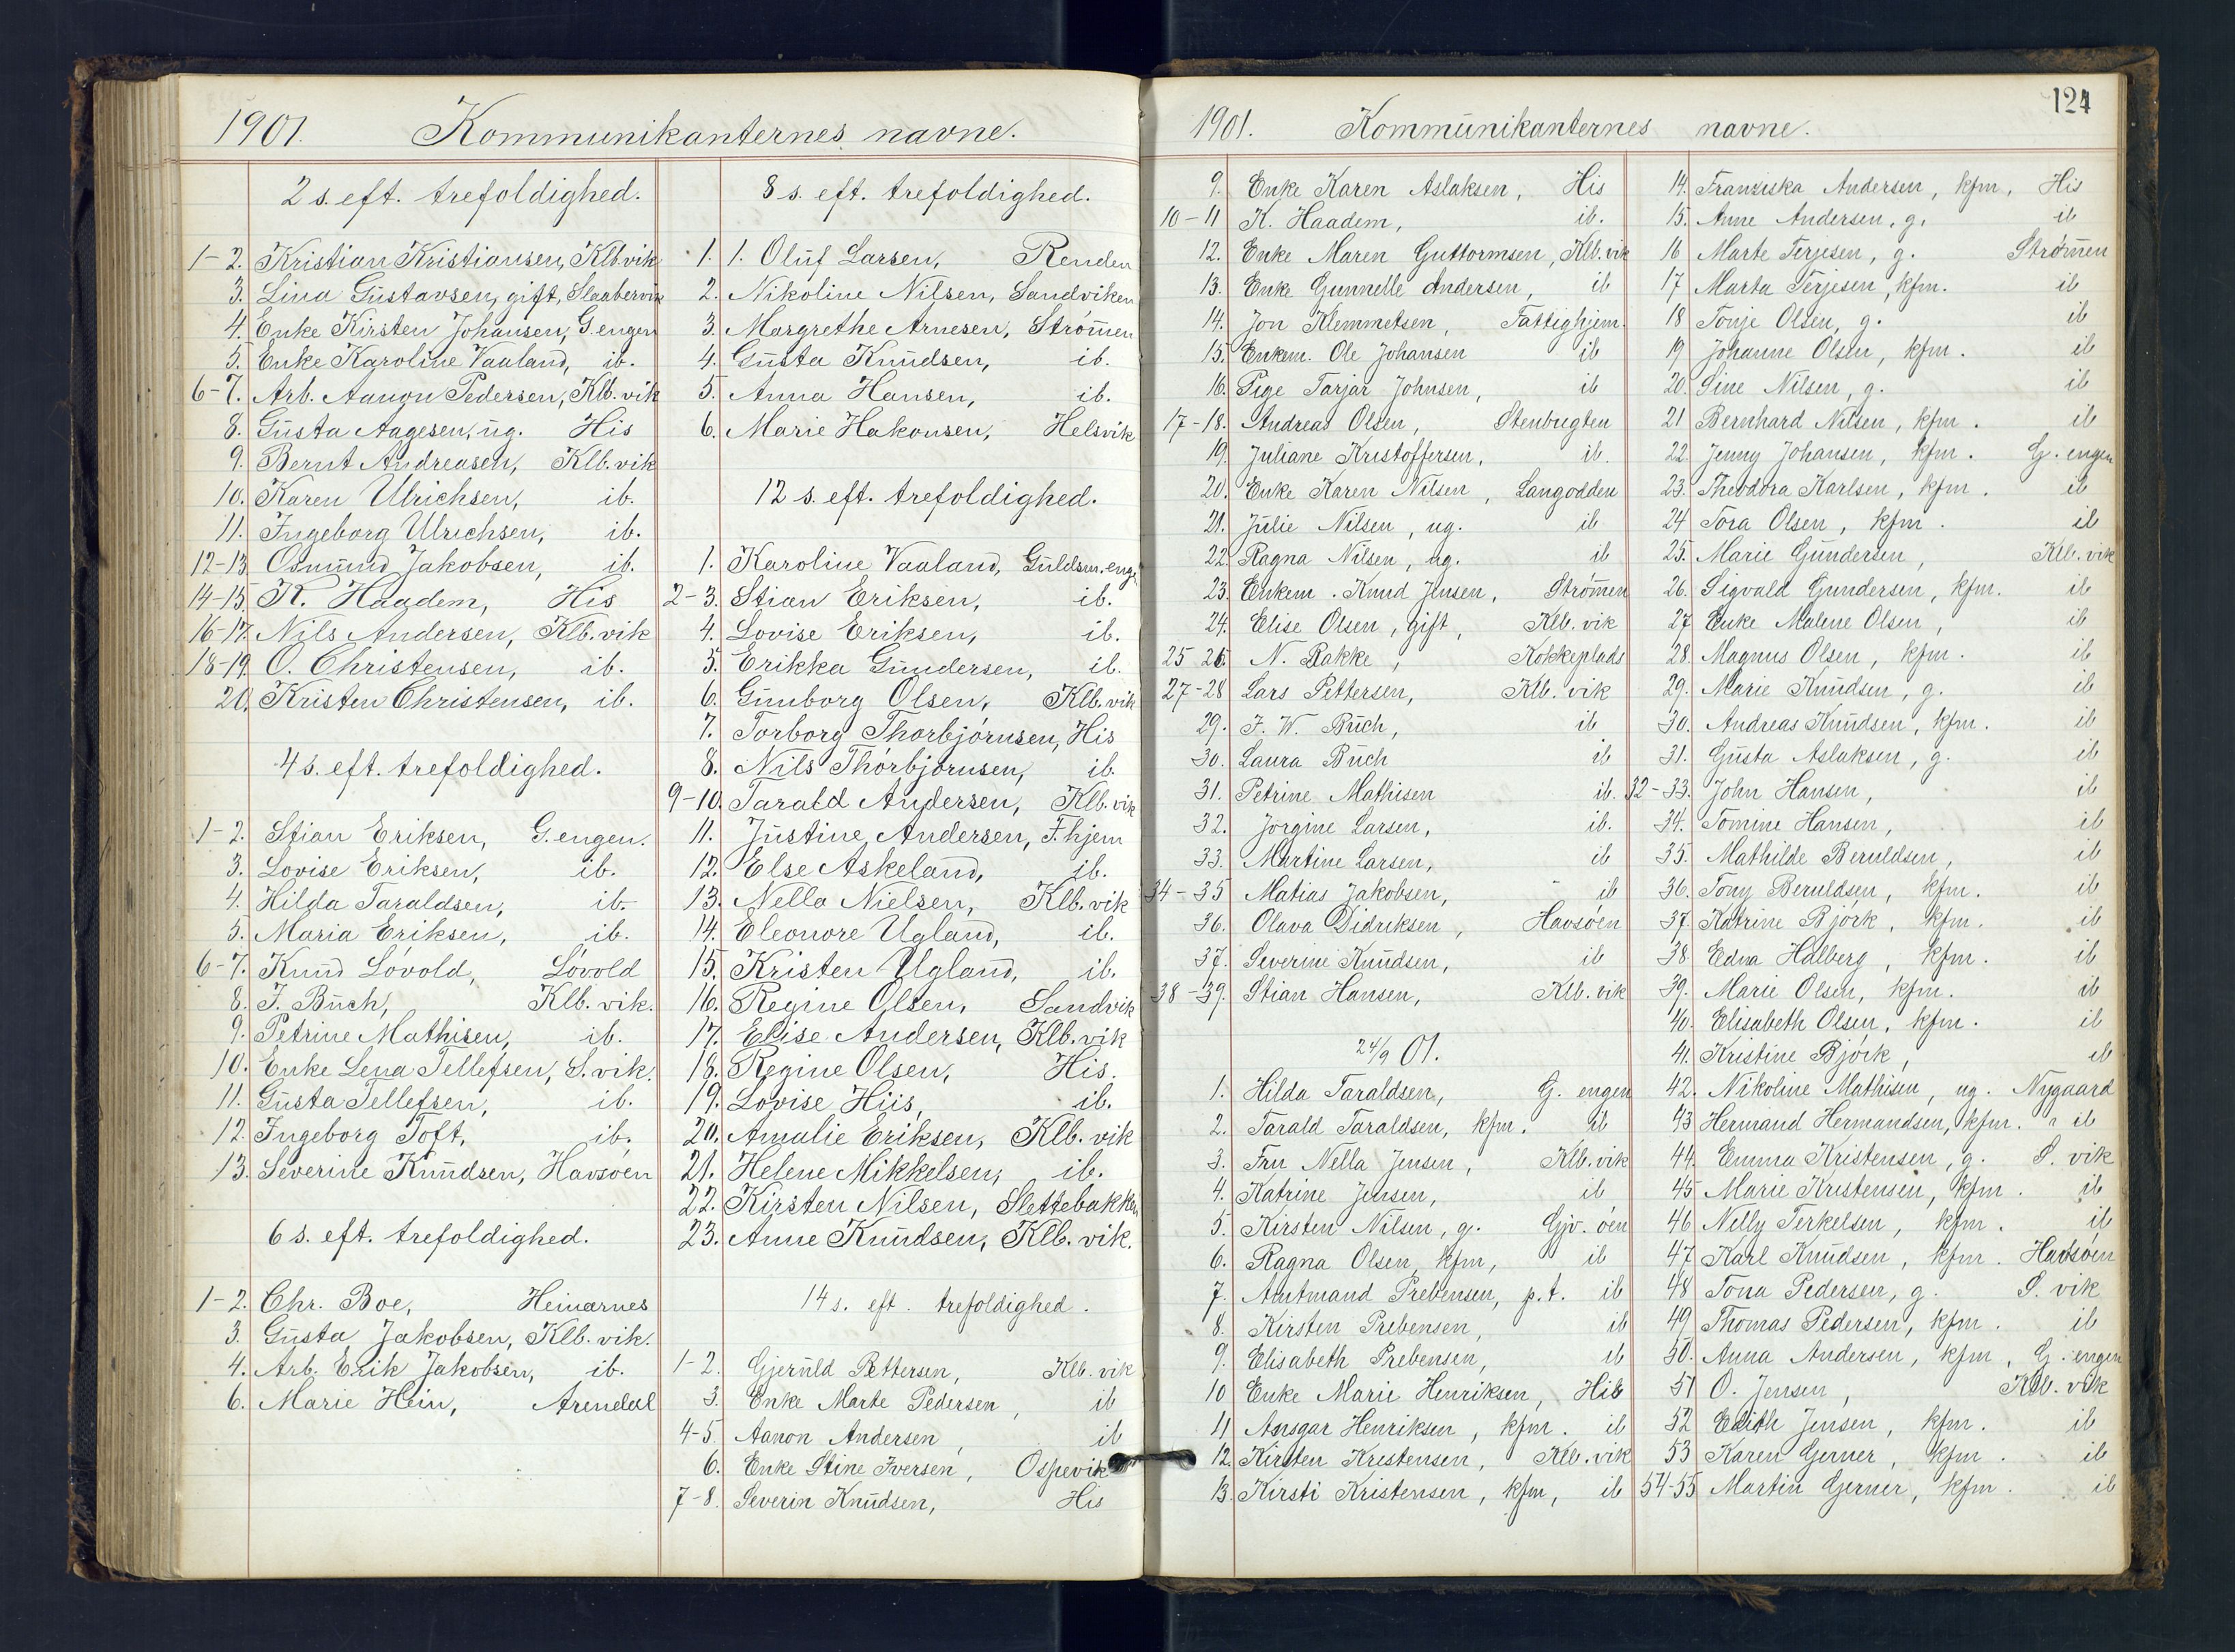 1901. Kommunikanternes navne.
2 s. eft. trefoldighed.
1-2. Kristian Kristiansen, Klb.vik
3. Lina Gustavsen, gift, Slaabervik
4. Enke Kirsten Johansen, G.engen
5. Enke Karoline Vaaland, ib.
6-7. Arb. Aanon Pedersen, Klb.vik
8. Gusta Aagesen, ug. His
9. Bernt Andreasen, Klb.vik
10. Karen Ulrichsen, ib.
11. Ingeborg Ulrichsen, ib.
12-13 Osmund Jakobsen, ib.
14-15 K. Haadem, His
16-17. Nils Andersen, Klb.vik
18-19. O. Christensen, ib.
20. Kristen Christensen, ib.
4 s. eft. trefoldighed.
1-2. Stian Eriksen, G.engen.
3. Lovise Eriksen, ib.
4. Hilda Taraldsen, ib.
5. Maria Eriksen, ib.
6-7. Knud Lövold, Lövold
8. F. Buch, Klb.vik.
9. Petrine Mathisen, ib.
10. Enke Lena Tellefsen, S.vik.
11. Gusta Tellefsen, ib.
12. Ingeborg Toft, ib.
13. Severine Knudsen, Havsöen
6 s. eft. trefoldighed.
1-2. Chr. Boe, Heinarnes
3. Gusta Jakobsen, Klb.vik.
4. Arb. Erik Jakobsen, ib.
6. Marie Hein, Arendal
8 s. eft. trefoldighed.
1. 1. Oluf Larsen, Renden
2. Nikoline Nilsen, Sandviken
3. Margrethe Arnesen, Strömen
4. Gusta Knudsen, ib.
5. Anna Hansen, ib.
6. Marie Hakonsen, Helsvik
12 s. eft. trefoldighed.
1. Karoline Vaaland, Guldsm.enge
2-3. Stian Eriksen, ib.
4. Lovise Eriksen, ib.
5. Erikka Gundersen, ib.
6. Gunborg Olsen, Klb.vik
7. Torborg Thorbjörnsen, His
8. Nils Thorbjörnsen, ib.
9-10. Tarald Andersen, Klb.vik
11. Justine Andersen, F.hjem
12. Else Askeland, ib.
13. Nella Nielsen, Klb.vik
14. Eleonore Ugland, ib.
15. Kristen Ugland, ib.
16. Regine Olsen, Sandvik
17. Elise Andersen, Klb.vik
18. Regine Olsen, His.
19. Lovise Hiis, ib.
20. Amalie Eriksen, Klb.vik
21. Helene Mikkelsen, ib.
22. Kirsten Nilsen, Slettebakken
23. Anne Knudsen, Klb.vik.
14 s. eft. trefoldighed.
1-2. Gjeruld Pettersen, Klb.vik
3. Enke Marte Pedersen, ib
4-5. Aanon Andersen, ib
6. Enke Stine Iversen, Ospevik
7-8. Severin Knudsen, His
124
1901. Kommunikanternes navne.
9. Enke Karen Aslaksen, His
10-11 K. Haadem, ib.
12. Enke Maren Guttormsen, Klb.vik
13. Enke Gunnelle Andersen, ib
14. Jon Klemmetsen, Fattighjem.
15. Enkem. Ole Johansen ib
16. Pige Tarjar Johnsen, ib
17-18. Andreas Olsen, Stenbugten
19. Juliane Kristoffersen, ib.
20. Enke Karen Nilsen, Langodden
21. Julie Nilsen, ug. ib
22. Ragna Nilsen, ug. ib
23. Enkem. Knud Jensen, Strömen
24. Elise Olsen, gift, Klb.vik
25 26. N. Bakke, Kokkeplads
27-28 Lars Pettersen, Klb.vik
29. F. W. Buch, ib
30. Laura Buch ib
31. Petrine Mathisen ib.
32. Jörgine Larsen, ib.
33. Martine Larsen, ib
34-35 Matias Jakobsen, ib
36. Olava Didriksen, Havsöen
37. Severine Knudsen, ib
38-39. Stian Hansen, Klb.vik
24/9 01.
1. Hilda Taraldsen, G. engen
2. Tarald Taraldsen, kfm. ib
3. Fru Nella Jensen, Klb.vik
4. Katrine Jensen, ib
5. Kirsten Nilsen, g. Gjv. öen
6. Ragna Olsen, kfm, ib
7. Amtmand Prebensen, p.t. ib
8. Kirsten Prebensen, ib
9. Elisabeth Prebensen, ib
10 Enke Marie Henriksen, His
11 Ansgar Henriksen, kfm. ib
12. Kirsten Kristensen, Klb.vik
13. Kirsti Kristensen, kfm, ib
14. Franziska Andersen, kfm, His
15. Anne Andersen, g. ib
16 Marte Terjesen, g. Strömen
17 Marta Terjesen, kfm. ib
18 Tonje Olsen, g. ib
19 Johanne Olsen, kfm. ib
20. Sine Nilsen, g. ib
21 Bernhard Nilsen, kfm. ib
22 Jenny Johansen, kfm. G. engen
23. Theodora Karlsen, kfm. ib
24 Tora Olsen, kfm. ib
25. Marie Gundersen, Klb.vik
26. Sigvald Gundersen, kfm. ib
27 Enke Malene Olsen, ib
28. Magnus Olsen, kfm. ib
29. Marie Knudsen, g. ib
30. Andreas Knudsen, kfm. ib
31. Gusta Aslaksen, g. ib
32-33. John Hansen, ib
34. Tomine Hansen, ib
35. Mathilde Beruldsen, ib
36. Tony Beruldsen, kfm. ib
37. Katrine Björk, kfm. ib
38. Edna Halberg, kfm. ib
39. Marie Olsen, kfm. ib
40. Elisabeth Olsen, kfm. ib
41. Kristine Björk, ib
42. Nikoline Mathisen, ug. Nygaard
43 Hermand Hermandsen, kfm. ib
44. Emma Kristensen, g. S. vik
45 Marie Kristensen, kfm. ib
46 Nelly Terkelsen, kfm. ib
47 Karl Knudsen, kfm. Havsöen
48 Tona Pedersen, g. S. vik
49 Thomas Pedersen, kfm. ib
50. Anna Andersen, kfm, G. engen
51 O. Jensen, Klb.vik
52 Edith Jensen, kfm. ib
53 Karen Gerner, kfm. ib
54-55 Martin Gerner, kfm. ib